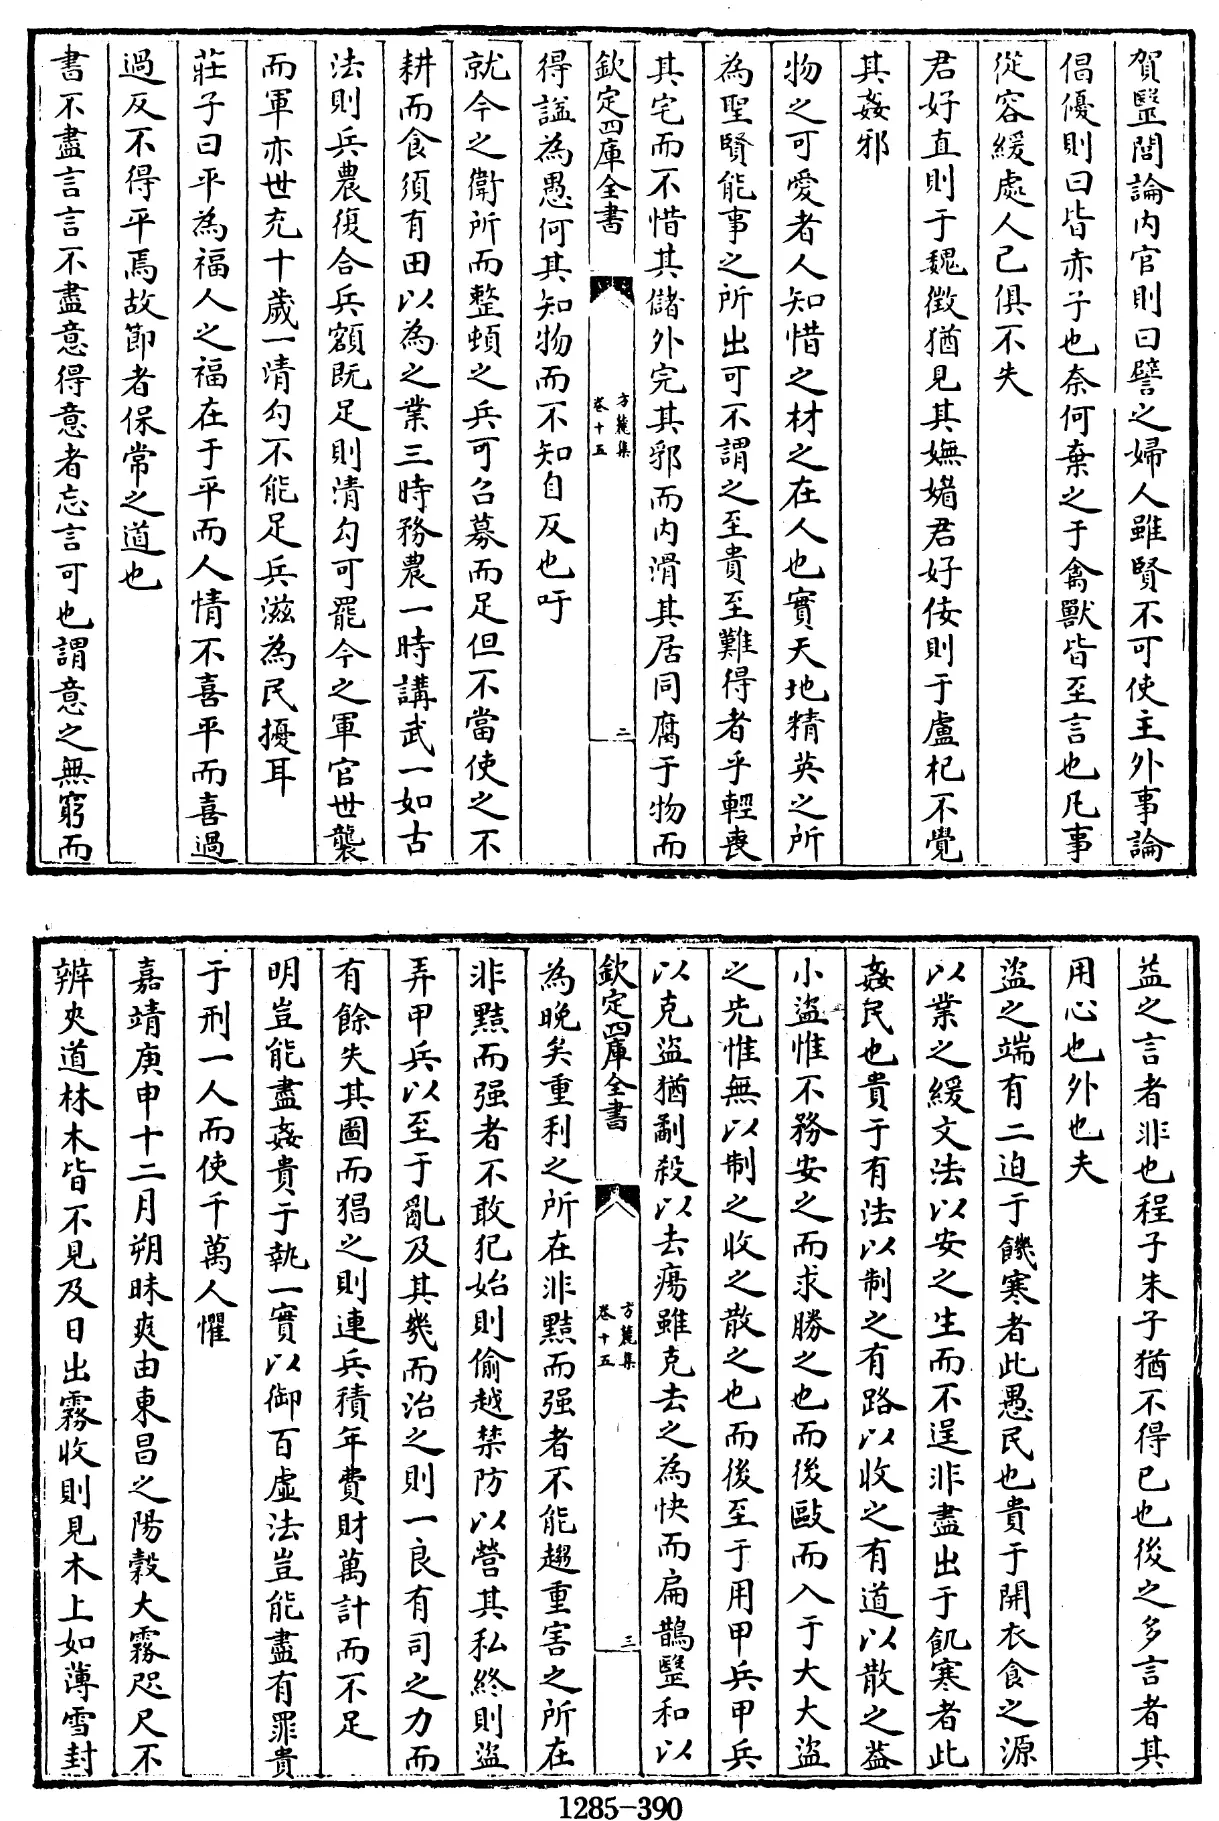 賀毉閭論內官則曰譬之婦人雖賢不可使主外事論
倡優則曰皆赤子也奈何棄之于禽獸皆至言也凡事
從容緩處人己俱不失
君好直則于魏徵猶見其嫵媚君好佞則于盧杞不覺
其姦邪
物之可愛者人知惜之材之在人也實天地精英之所
為聖賢能事之所出可不謂之至貴至難得者乎輕喪
其宅而不惜其儲外完其郛而內滑其居同腐于物而
欽定四庫全書
方麓集
卷十五
二
得謚為愚何其知物而不知自反也吁
就今之衛所而整頓之兵可召募而足但不當使之不
耕而食須有田以為之業三時務農一時講武一如古
法則兵農復合兵額既足則清勾可罷今之軍官世襲
而軍亦世充十歲一清勾不能足兵滋為民擾耳
莊子曰平為福人之福在于平而人情不喜平而喜過
過反不得平焉故節者保常之道也
書不盡言言不盡意得意者忘言可也謂意之無窮而
益之言者非也程子朱子猶不得已也後之多言者其
用心也外也夫
盜之端有二迫于饑寒者此愚民也貴于開衣食之源
以業之緩文法以安之生而不逞非盡出于飢寒者此
姦民也貴于有法以制之有路以收之有道以散之葢
小盜惟不務安之而求勝之也而後敺而入于大大盜
之先惟無以制之收之散之也而後至于用甲兵甲兵
以克盜猶劀殺以去瘍雖克去之為快而扁鵲毉和以
欽定四庫全書
方麓集
卷十五
三
為晚矣重利之所在非黠而强者不能趨重害之所在
非黠而强者不敢犯始則偷越禁防以營其私終則盜
弄甲兵以至于亂及其幾而治之則一良有司之力而
有餘失其圖而猖之則連兵積年費財萬計而不足
明豈能盡姦貴于執一實以御百虛法豈能盡有罪貴
于刑一人而使千萬人懼
嘉靖庚申十二月朔昧爽由東昌之陽穀大霧咫尺不
辨夾道林木皆不見及日出霧收則見木上如薄雪封
1285-390